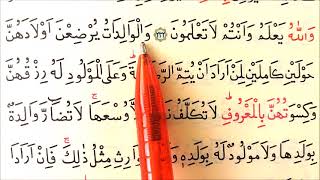 وَاللّٰهُ يَعْلَمُ وَاَنْتُمْ لَاتَعْلَمُونَ ﴿٢٣٢﴾ وَالْوَالِدَاتُ يُرْضِعْنَ اَوْلَادَهُنَّ
حَوْلَيْنِ كَامِلَيْنِ لِمَنْ اَرَادَ اَنْ يُتِمَّ الرَّ وَعَلَى الْمَوْلُودِ لَهُ رِزْقُهُنَّ
وَكِسْوَتُهُنَّ بِالْمَعْرُوفِ لَاتُكَلَّفُ وُسْعَهَا لَاتُضَٓارَّ وَالِدَةٌ
بِوَلَدِهَا وَلَامَوْلُودٌ لَهُ بِوَلَدِهِ وَ ارِثِ مِثْلُ ذٰلِكَ فَاِنْ اَرَادَا